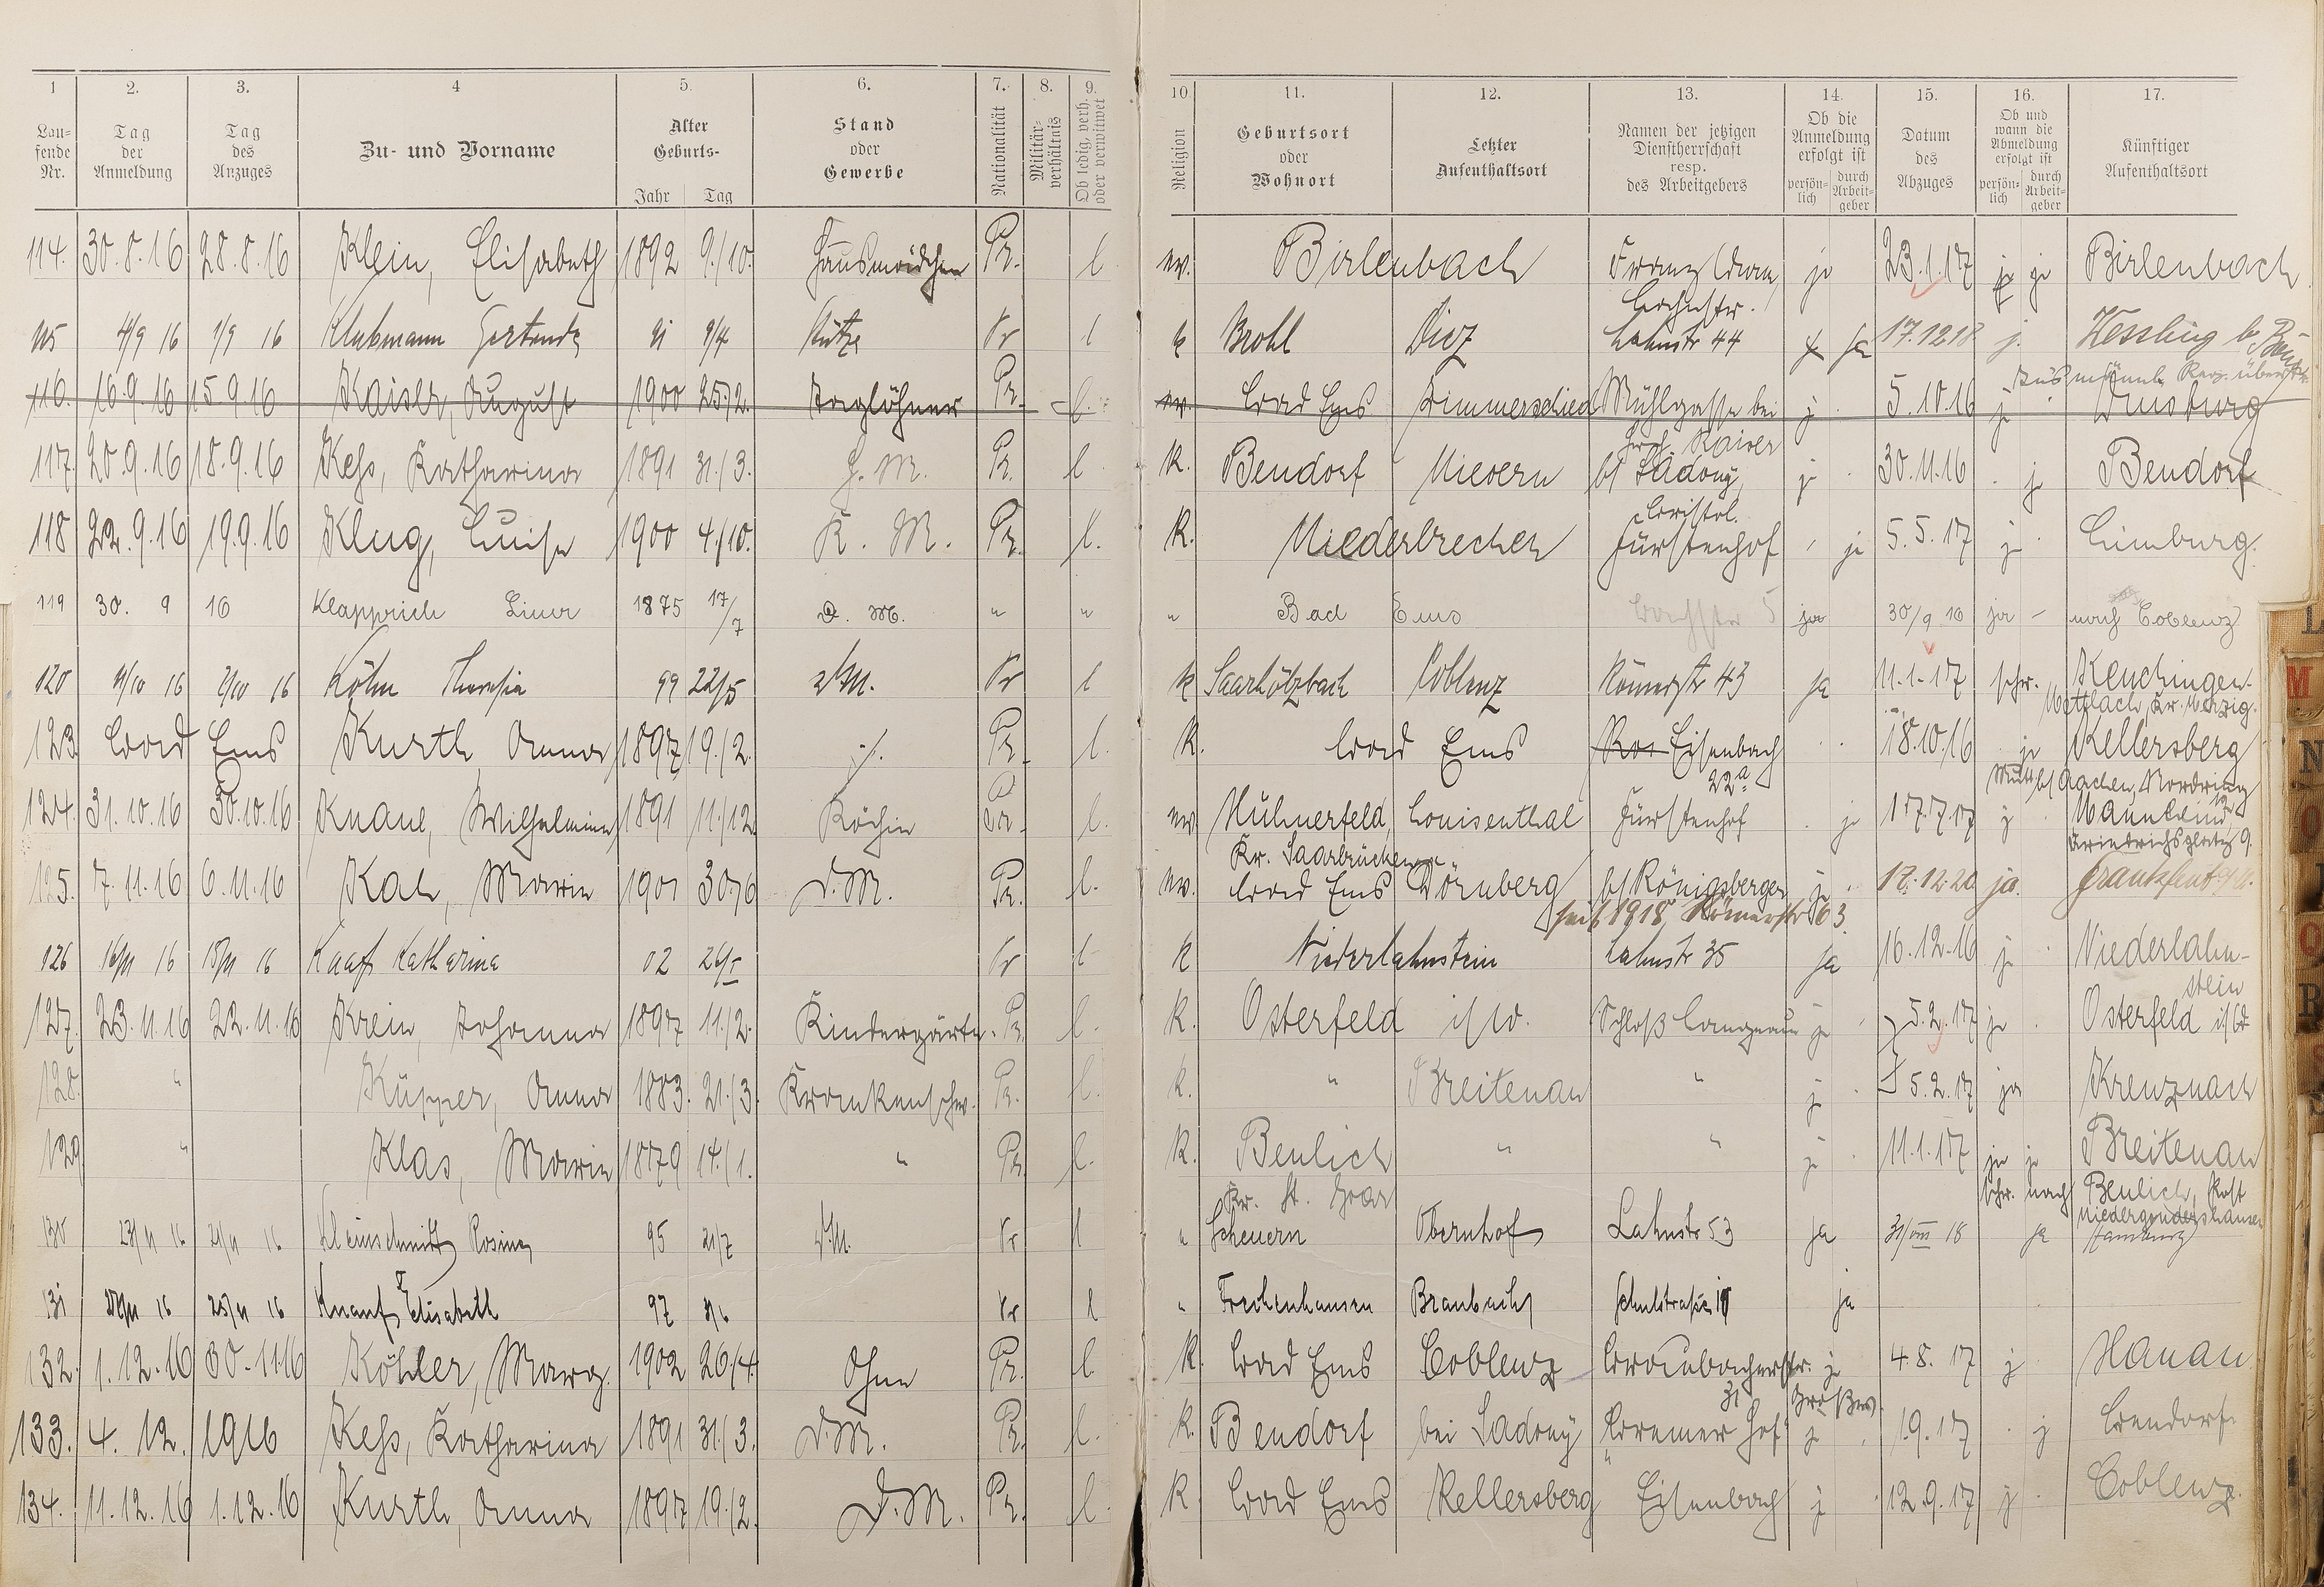 1 2. 3. 4 5. 6. 7. 8. 9. 10 11. 12. 13. 14. 15. 16. 17.
Lau-fende Nr. Tag der Anmeldung Tag des Anzuges Zu- und Vorname Alter Geburts- Jahr Tag Stand oder Gewerbe Nationalität Militär-verhältnis Ob ledig, verh. oder verwitwet Religion Geburtsort oder Wohnort Letzter Aufenthaltsort Namen der jetzigen Dienstherrschaft resp. des Arbeitgebers Ob die Anmeldung erfolgt ist persön-lich durch Arbeit-geber Datum des Abzuges Ob und wann die Abmeldung erfolgt ist persön-lich durch Arbeit-geber Künftiger Aufenthaltsort
114. 30.8.16 28.8.16 Klein, Elisabeth 1892 9./10. Hausmädchen Pr. l. ev. Birlenbach Franz ja 23.1.17 ja Birlenbach
115 4/9 16 1/9 16 Gertrude 9/4 Stütze Pr l k Brohl Diez Lahnstr 44 ja 17.12 18 j.
116. 16.9.16 15.9.16 Kaiser, August 1900 25./2. Taglöhner Pr. l. ev. Bad Ems Zimmerschied Mühlgasse bei j 5.10.16 j Duisburg
117. 20.9.16 18.9.16 Keß, Katharina 1891 31./3. H. M. Pr. l. K. Bendorf Nievern b/ Sadony, j 30.11.16 j Bendorf
118 22.9.16 19.9.16 Klug, Luise 1900 4./10. K. M. Pr. l. K. Niederbrechen Fürstenhof ja 5.5.17 j Limburg.
119 30. 9 16 Klapprich Lina 1875 17/7 D. M. " " " Bad Ems 5 ja 30/9 16 ja - nach Coblenz
120 4/10 16 2/10 16 Köhn Theresia 99 22/5 D.M. Pr l k Saarhölzbach Coblenz Römerstr 43 ja 11.1.17 schr. Keuchingen
Mettlach, Kr. Merzig.
123 Bad Ems Kurth, Anna 1897 19./2. ./. Pr. l. K. Bad Ems Eisenbach 18.10.16 ja Kellersberg
22a b/ Aachen, Nordring
124. 31.10.16 30.10.16 Knaue, Wilhelmine 1891 11./12. Köchin Pr. l. ev. Hühnerfeld, Louisenthal Fürstenhof ja 17.7.17 j Mannheim
Kr. Saarbrücken Friedrichsplatz 9.
125. 7.11.16 6.11.16 Kah, Maria 1901 30./6 D.M. Pr. l. ev. Bad Ems Dörnberg b/ Königsberger ja 12.12.20 ja. Frankfurt a/M.
seit 1918 Römerstr 63
126 16/11 16 15/11 16 Kaaf Katharina 02 26/5 Pr l k Niederlahnstein Lahnstr 35 ja 16.12.16 j Niederlahn-
stein
127. 23.11.16 22.11.16 Krein, Johanna 1897 11./2. Kindergärtn. Pr. l. K. Osterfeld i/W. Schloß Langenau ja 5.2.17 ja Osterfeld i/W.
128. " Küpper, Anna 1883. 21./3. Krankenschw. Pr. l. K. " Breitenau " j 5.2.17 ja Kreuznach
129. " Klas, Maria 1879 14./1. " Pr. l. K. Beulich " " j 11.1.17 ja ja Breitenau
Kr. St. Goar schr. nach Beulich, Post
Niedergondershausen
130 23/11 16 21/11 16 Kleinschmitt Rosina 95 21/7 D.M. Pr l " Scheuern Obernhof Lahnstr 53 ja 31/VIII 18 ja Hamburg
131 27/11 16 25/11 16 Knauf Elisabeth 97 Pr l " Braubach Schulstrasse 10 ja
132. 1.12.16 30.11.16 Köhler, Marg. 1902 20./4. Ohne Pr. l. K. Bad Ems Coblenz Braubacherstr. j 4.8.17 j Hanau
31
133. 4. 12. 1916 Keß, Katharina 1891 31./3. D.M. Pr. l. K. Bendorf bei Sadony Bremer Hof j 1.9.17 j Bendorf
134. 11.12.16 1.12.16 Kurth, Anna 1897 19./2. D.M. Pr. l. K. Bad Ems Kellersberg Eisenbach j 12.9.17 j Coblenz.